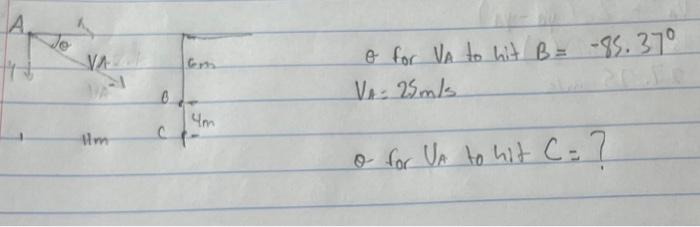 A
θ
y
VA
6m
B
4m
C
11m
θ for VA to hit B = -85.37°
VA = 25m/s
θ for VA to hit C = ?